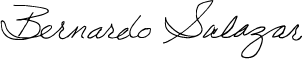 Bernardo Salazar